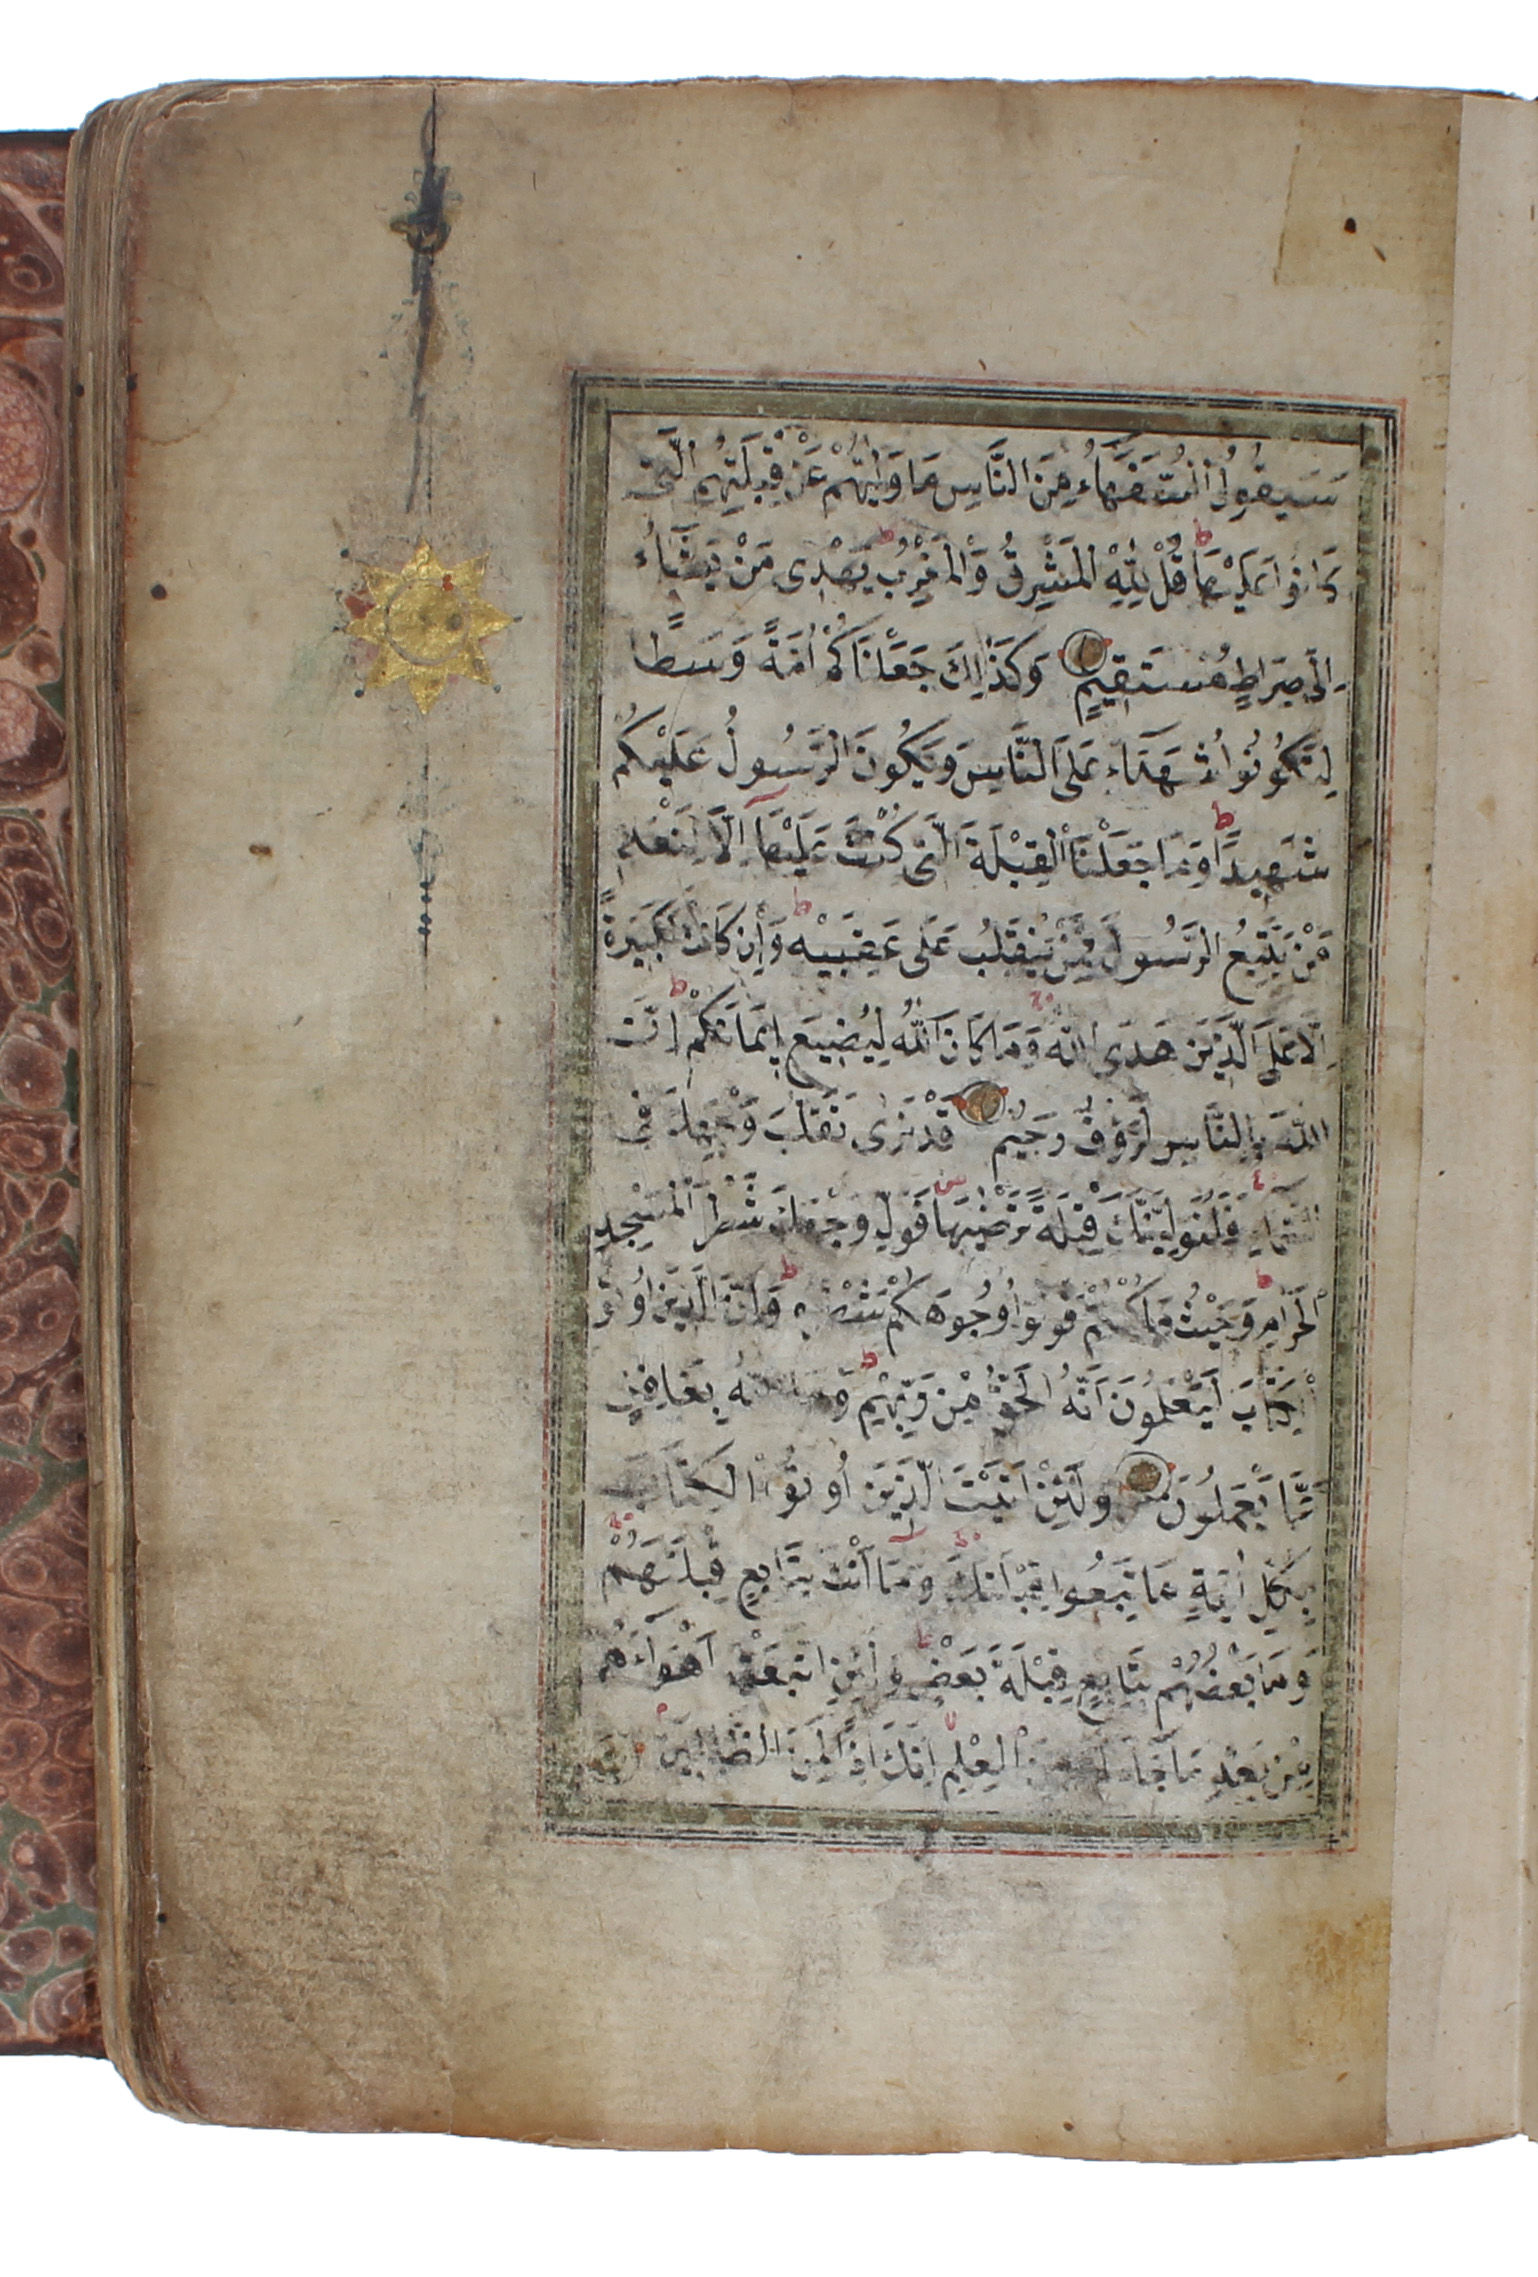 سَيَقُولُ السُّفَهَاءُ مِنَ النَّاسِ مَا وَلّٰيهُمْ عَنْ قِبْلَتِهِمُ الَّتِى
كَانُوا عَلَيْهَا قُلْ لِلّٰهِ الْمَشْرِقُ وَالْمَغْرِبُ يَهْدِى مَنْ يَشَاءُ
اِلٰى صِرَاطٍ مُسْتَقِيمٍ وَكَذٰلِكَ جَعَلْنَاكُمْ اُمَّةً وَسَطًا
لِتَكُونُوا شُهَدَاءَ عَلَى النَّاسِ وَيَكُونَ الرَّسُولُ عَلَيْكُمْ
شَهِيدًا وَمَا جَعَلْنَا الْقِبْلَةَ الَّتِى كُنْتَ عَلَيْهَا اِلَّا لِنَعْلَمَ
مَنْ يَتَّبِعُ الرَّسُولَ مِمَّنْ يَنْقَلِبُ عَلٰى عَقِبَيْهِ وَاِنْ كَانَتْ لَكَبِيرَةً
اِلَّا عَلَى الَّذِينَ هَدَى اللّٰهُ وَمَا كَانَ اللّٰهُ لِيُضِيعَ اِيمَانَكُمْ اِنَّ
اللّٰهَ بِالنَّاسِ لَرَؤُفٌ رَحِيمٌ قَدْ نَرٰى تَقَلُّبَ وَجْهِكَ فِى
السَّمَاءِ فَلَنُوَلِّيَنَّكَ قِبْلَةً تَرْضٰيهَا فَوَلِّ وَجْهَكَ شَطْرَ الْمَسْجِدِ
الْحَرَامِ وَحَيْثُ مَا كُنْتُمْ فَوَلُّوا وُجُوهَكُمْ شَطْرَهُ وَاِنَّ الَّذِينَ اُوتُوا
الْكِتَابَ لَيَعْلَمُونَ اَنَّهُ الْحَقُّ مِنْ رَبِّهِمْ وَمَا اللّٰهُ بِغَافِلٍ
عَمَّا يَعْمَلُونَ وَلَئِنْ اَتَيْتَ الَّذِينَ اُوتُوا الْكِتَابَ
بِكُلِّ اٰيَةٍ مَا تَبِعُوا قِبْلَتَكَ وَمَا اَنْتَ بِتَابِعٍ قِبْلَتَهُمْ
وَمَا بَعْضُهُمْ بِتَابِعٍ قِبْلَةَ بَعْضٍ وَلَئِنِ اتَّبَعْتَ اَهْوَاءَهُمْ
مِنْ بَعْدِ مَا جَاءَكَ مِنَ الْعِلْمِ اِنَّكَ اِذًا لَمِنَ الظَّالِمِينَ